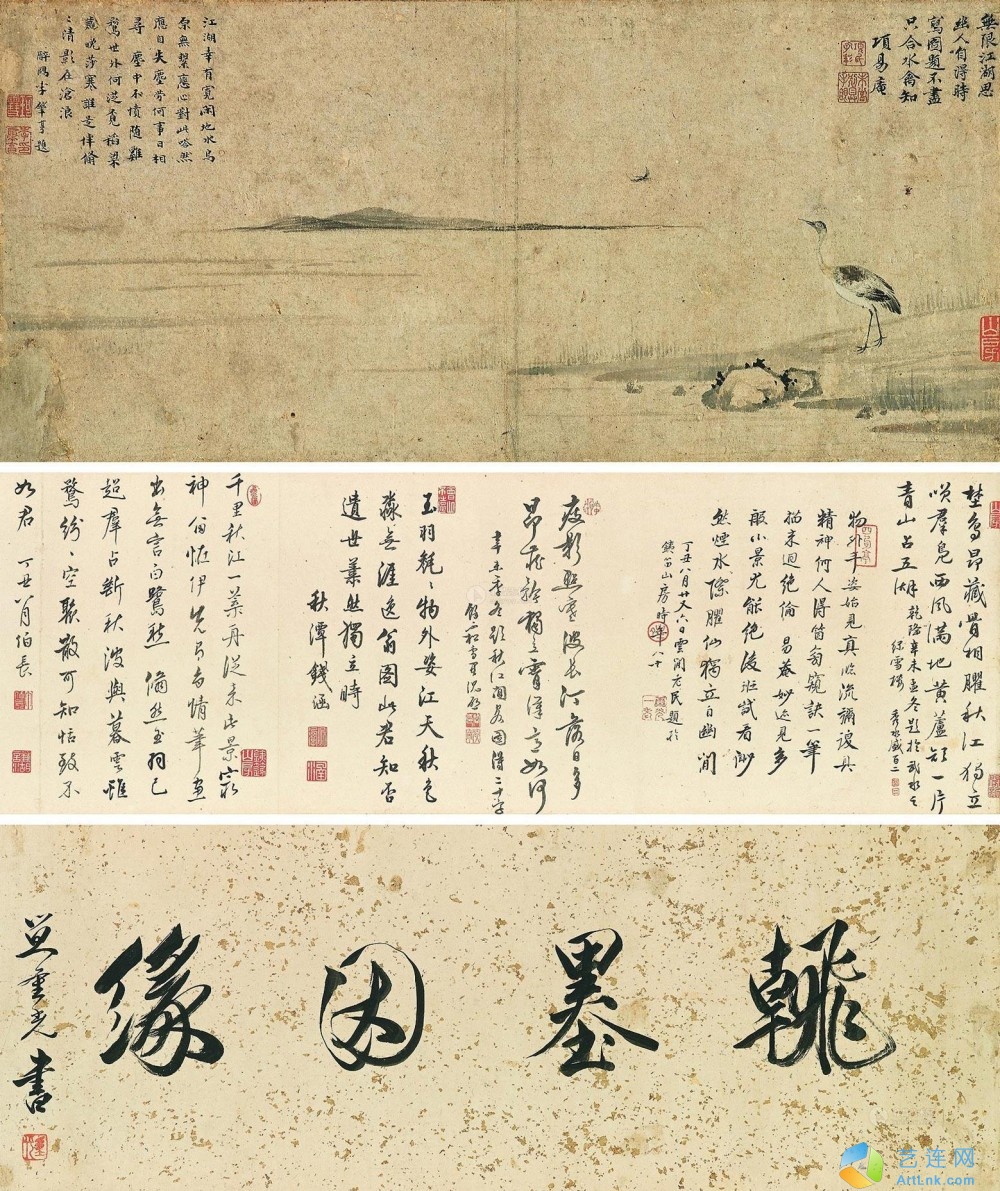 無限江湖思
幽人自得時
寫圖題不盡
只合水禽知
項易庵
江湖幸有寬閑地水鳥
原無繫應心對此嗒然
應自失塵勞何事日相
尋 塵中不憤随雞
鶩世外何從覓稻粱
歲晚莎寒誰是伴翛
〻清影在滄浪
醉鷗李肇亨題
山房
野鳥昂藏骨相臞秋江獨立
唳群鳧西風滿地黃蘆短一片
青山占五湖
乾隆辛未孟冬題於
秀水盛百二
物外丰姿始見真臨流彌覺具
精神何人得皆翁窺訣一筆
描來迥絕倫 易菴妙迹見多
般小景尤能絕後班試看渺
然煙水際臞仙獨立白幽閒
丁丑八月廿又六日雲閒老民題於
鉄笛山房時年八十
瘦影照寒波長汀落日多
昂藏獨立意如何
辛未季冬題秋江圖得二十字
玉羽毿〻物外姿江天秋色
淼無涯逸翁圖此君知否
遺世蕭然獨立時
秋潭錢涵
千里秋江一葉舟從来此景寂
神 翁恠伊先有高情筆畫
出無言白鷺愁 翛然玉羽已
超羣占断秋波與暮雲雖
鶩紛〻空聚散可知恬致不
如君
丁丑八月伯長
翰墨因緣
笪重光書
艺连网
ArtLnk.com